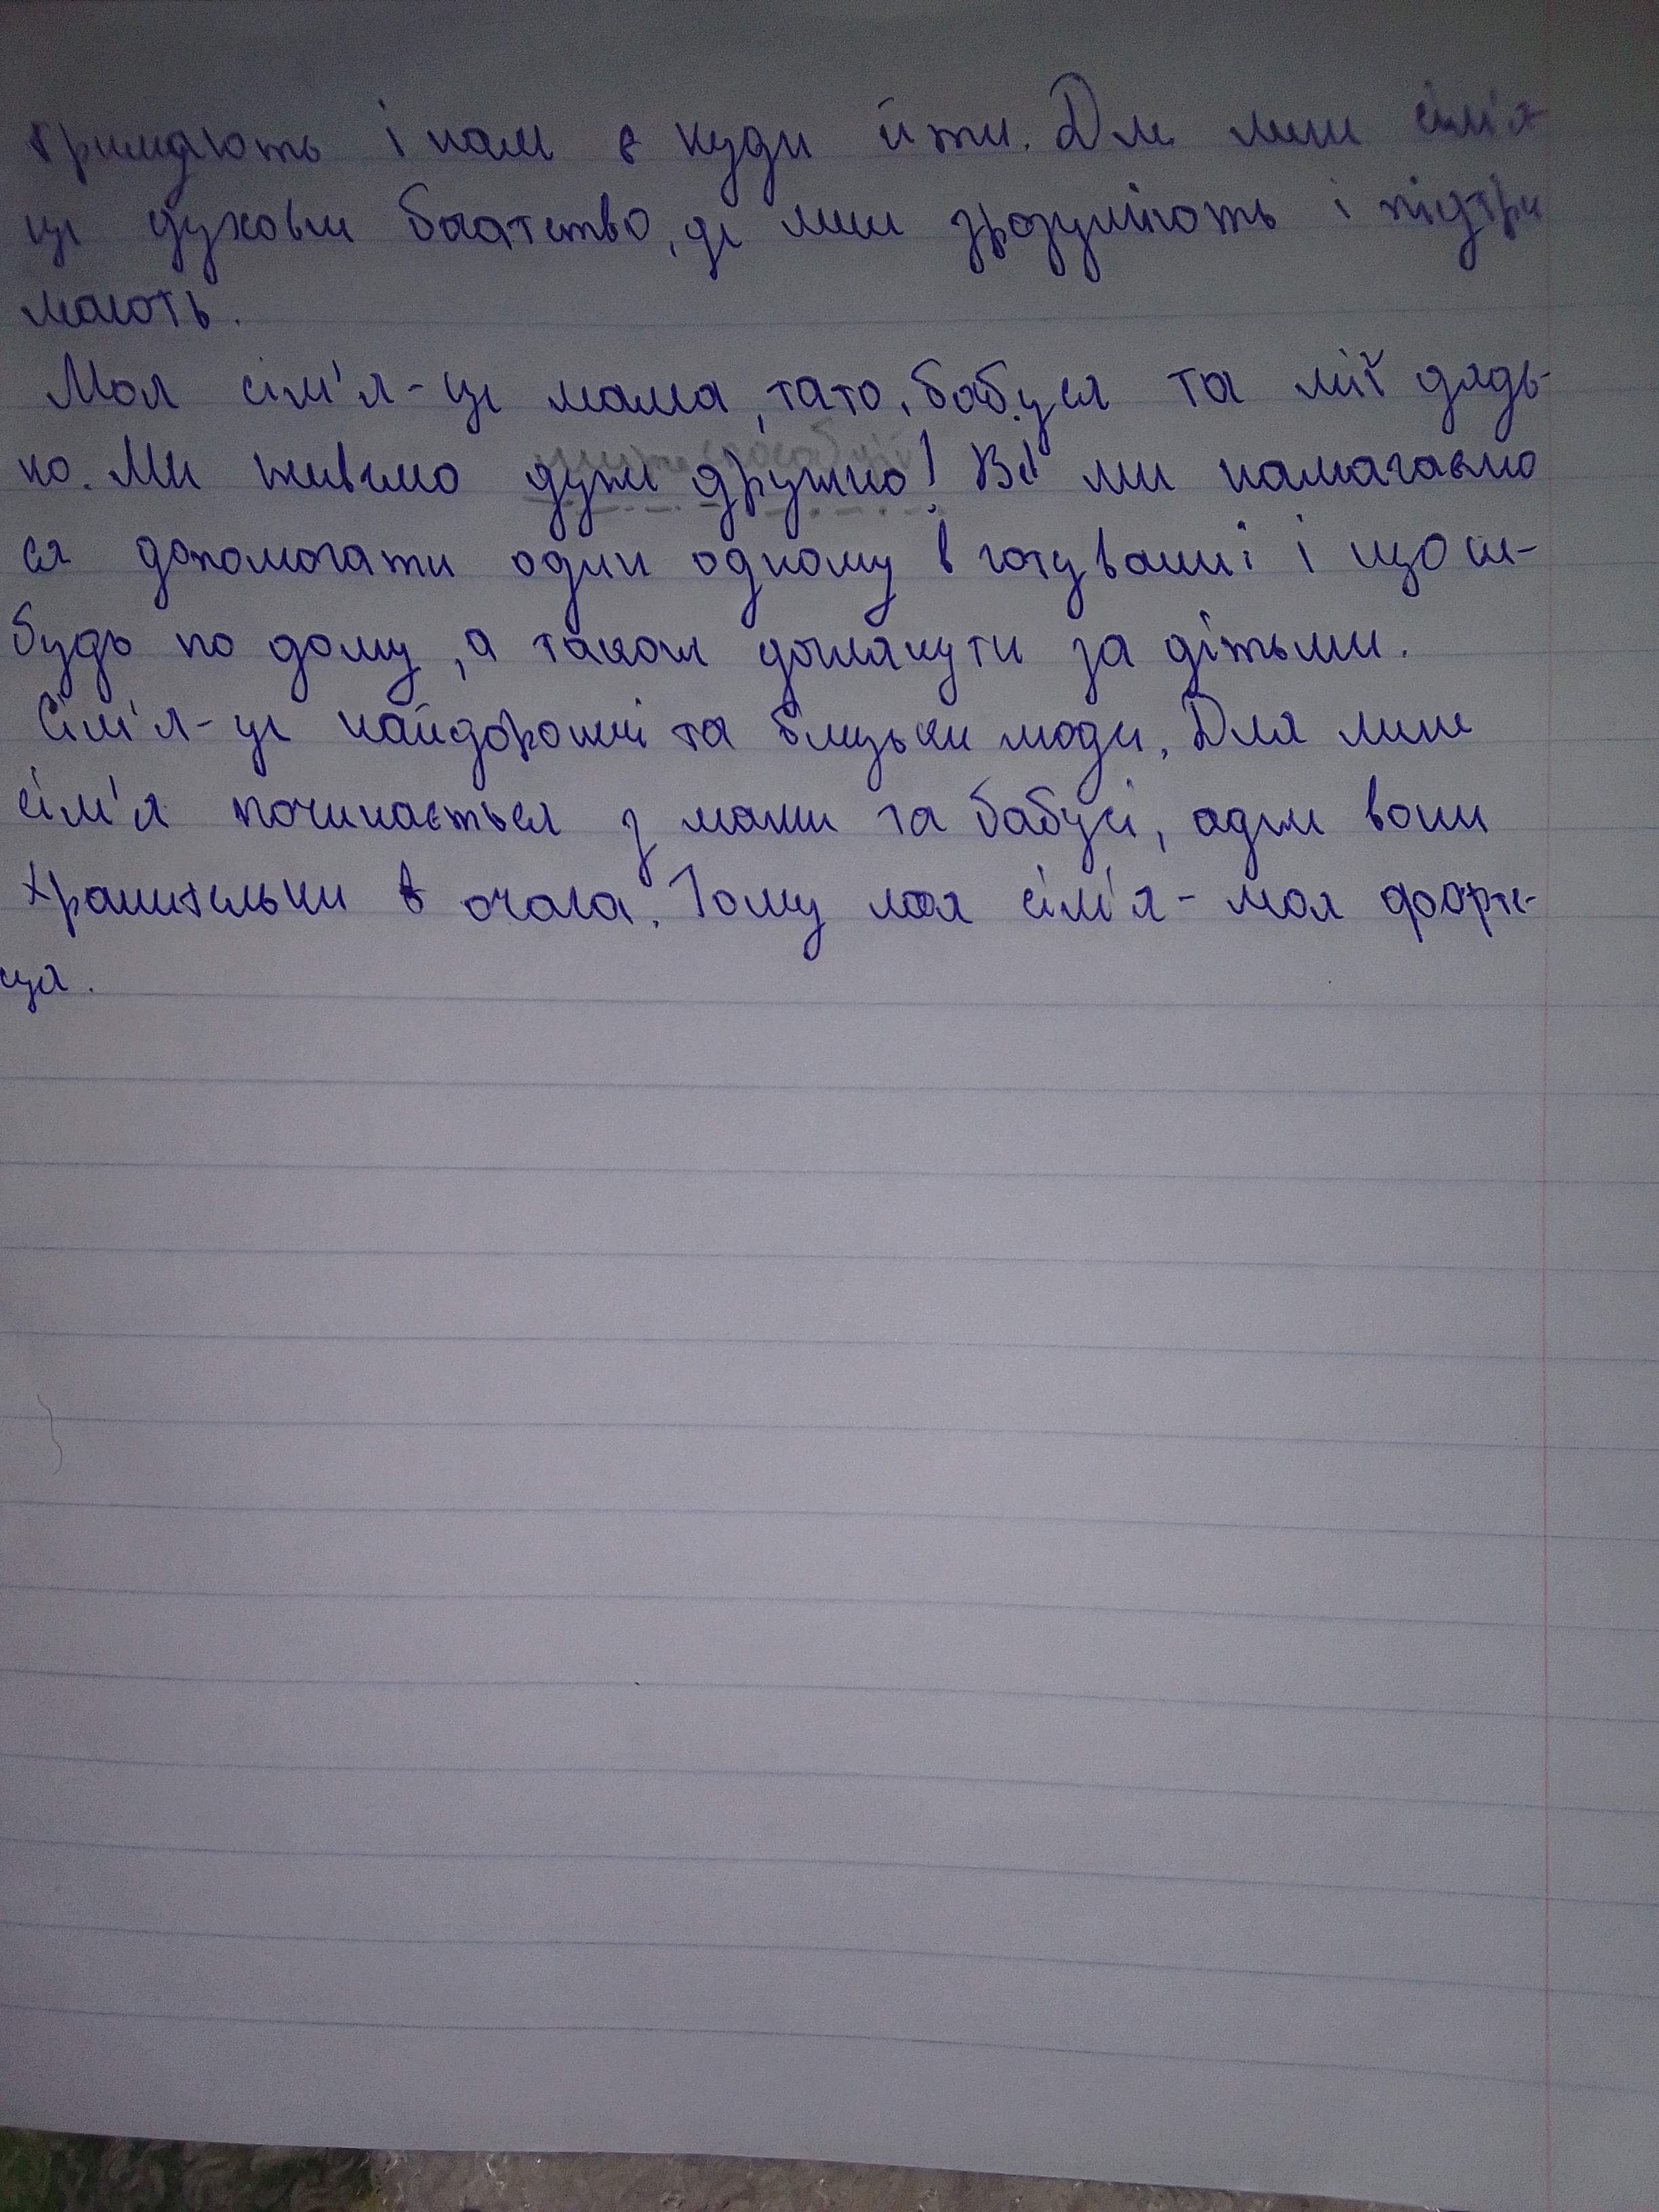 тримають і нам є куди йти. Для мене сім'я
це духовне багатство, де мене зрозуміють і підтри
мають.
Моя сім'я - це мама, тато, бабуся та мій дядь-
ко. Ми живемо дуже дружно! Всі ми намагаємо
ся допомогати один одному в готуванні і що не-
будь по дому, а також доглянути за дітьми.
Сім'я - це найдорожчі та близьки люди. Для мене
сім'я починається з мами та бабусі, адже вони
хранительки очага. Тому моя сім'я - моя форте-
ця.